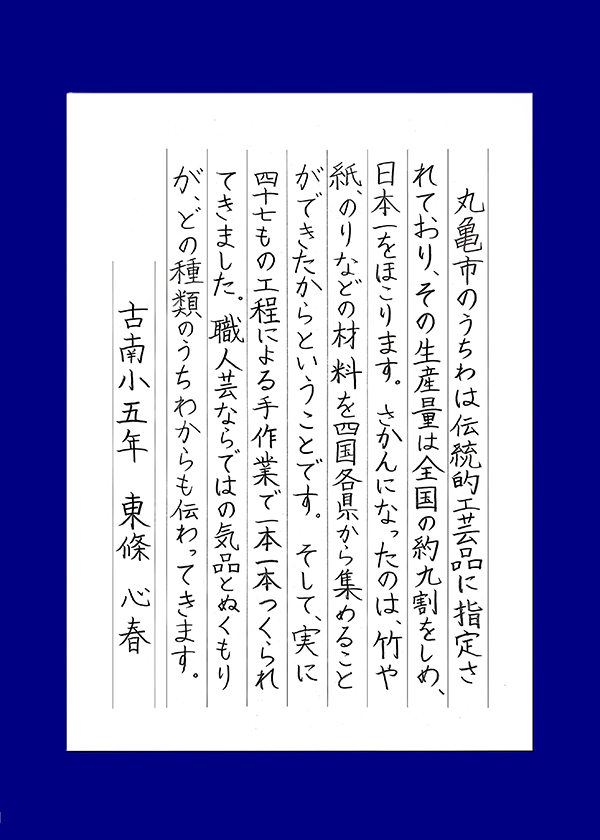 丸亀市のうちわは伝統的工芸品に指定さ
れており、その生産量は全国の約九割をしめ、
日本一をほこります。さかんになったのは、竹や
紙、のりなどの材料を四国各県から集めること
ができたからということです。そして、実に
四十七もの工程による手作業で一本一本つくられ
てきました。職人芸ならではの気品とぬくもり
が、どの種類のうちわからも伝わってきます。
古南小五年 東條心春